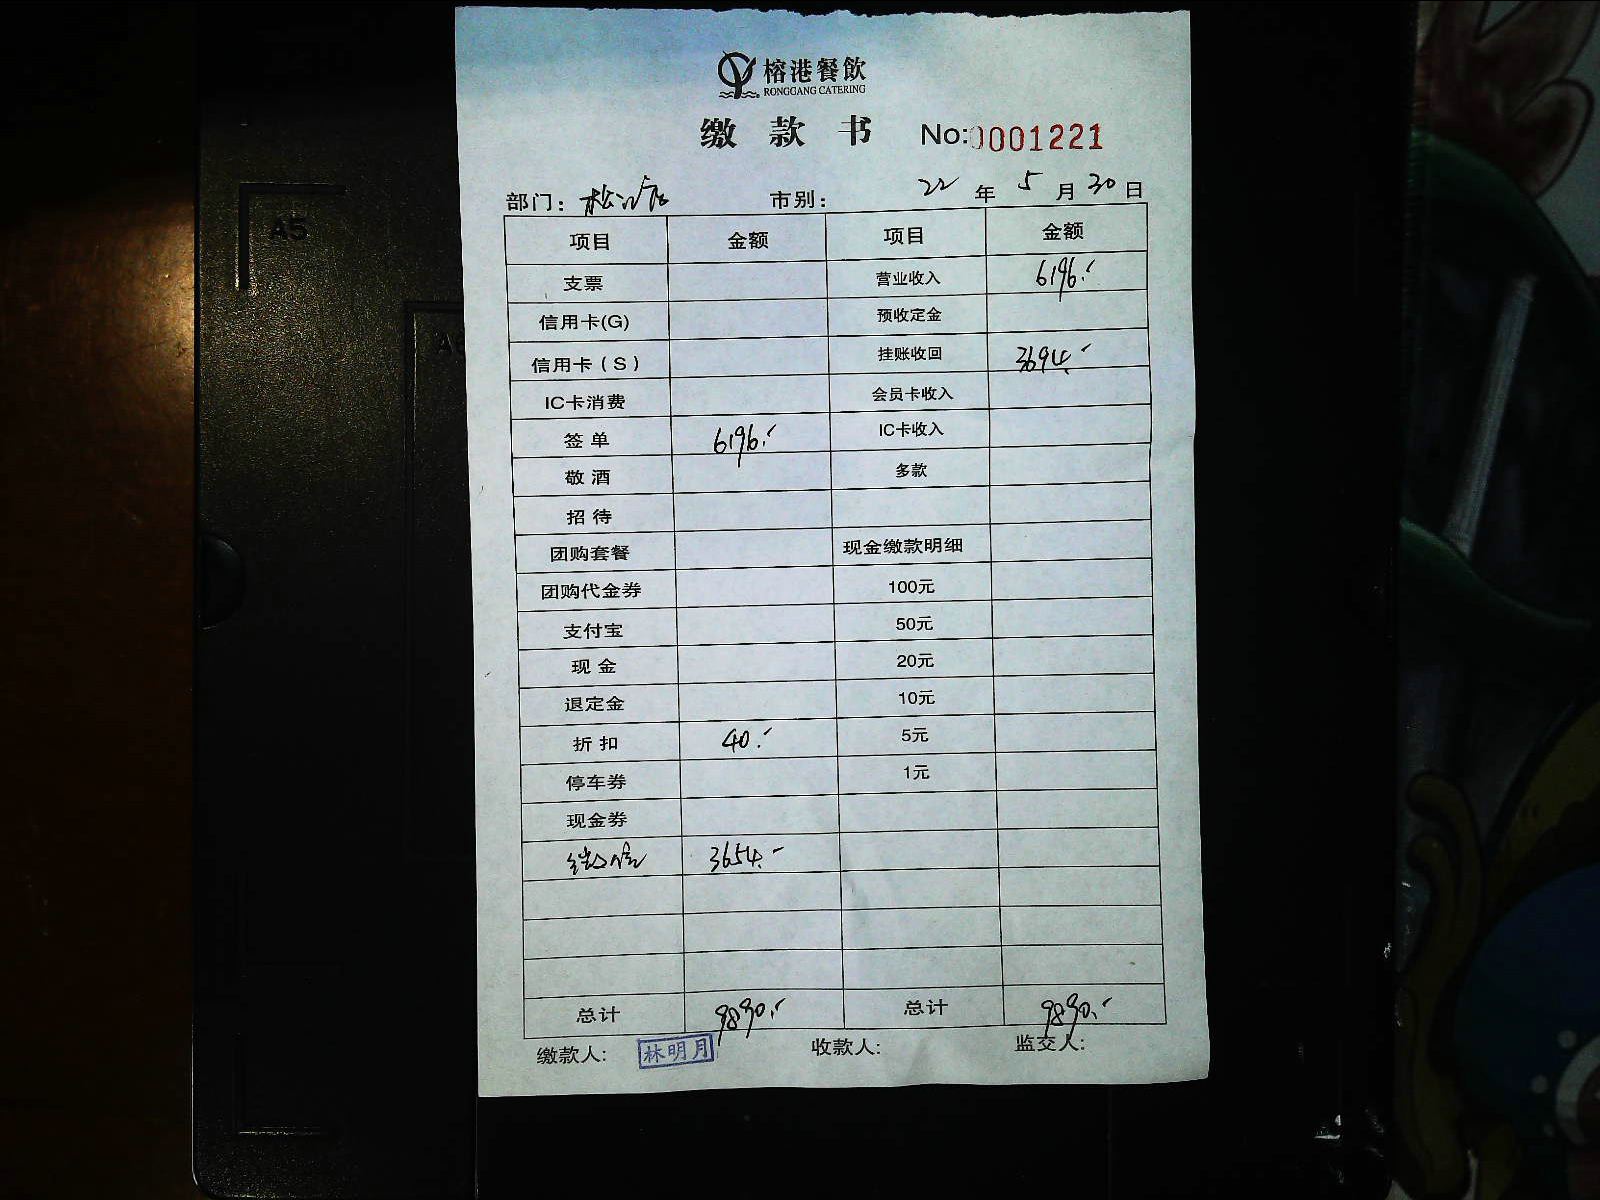 榕港餐飲
RONGGANG CATERING
缴款书 No:0001221
部门: 松江店 市别: 22年5月30日
项目 金额 项目 金额
支票 营业收入 6196.-
信用卡(G) 预收定金
信用卡(S) 挂账收回 3694.-
IC卡消费 会员卡收入
签单 6196.- IC卡收入
敬酒 多款
招待
团购套餐 现金缴款明细
团购代金券 100元
支付宝 50元
现金 20元
退定金 10元
折扣 40.- 5元
停车券 1元
现金券
3654.-
总计 9890.- 总计 9890.-
缴款人: 林明月 收款人: 监交人:
A5